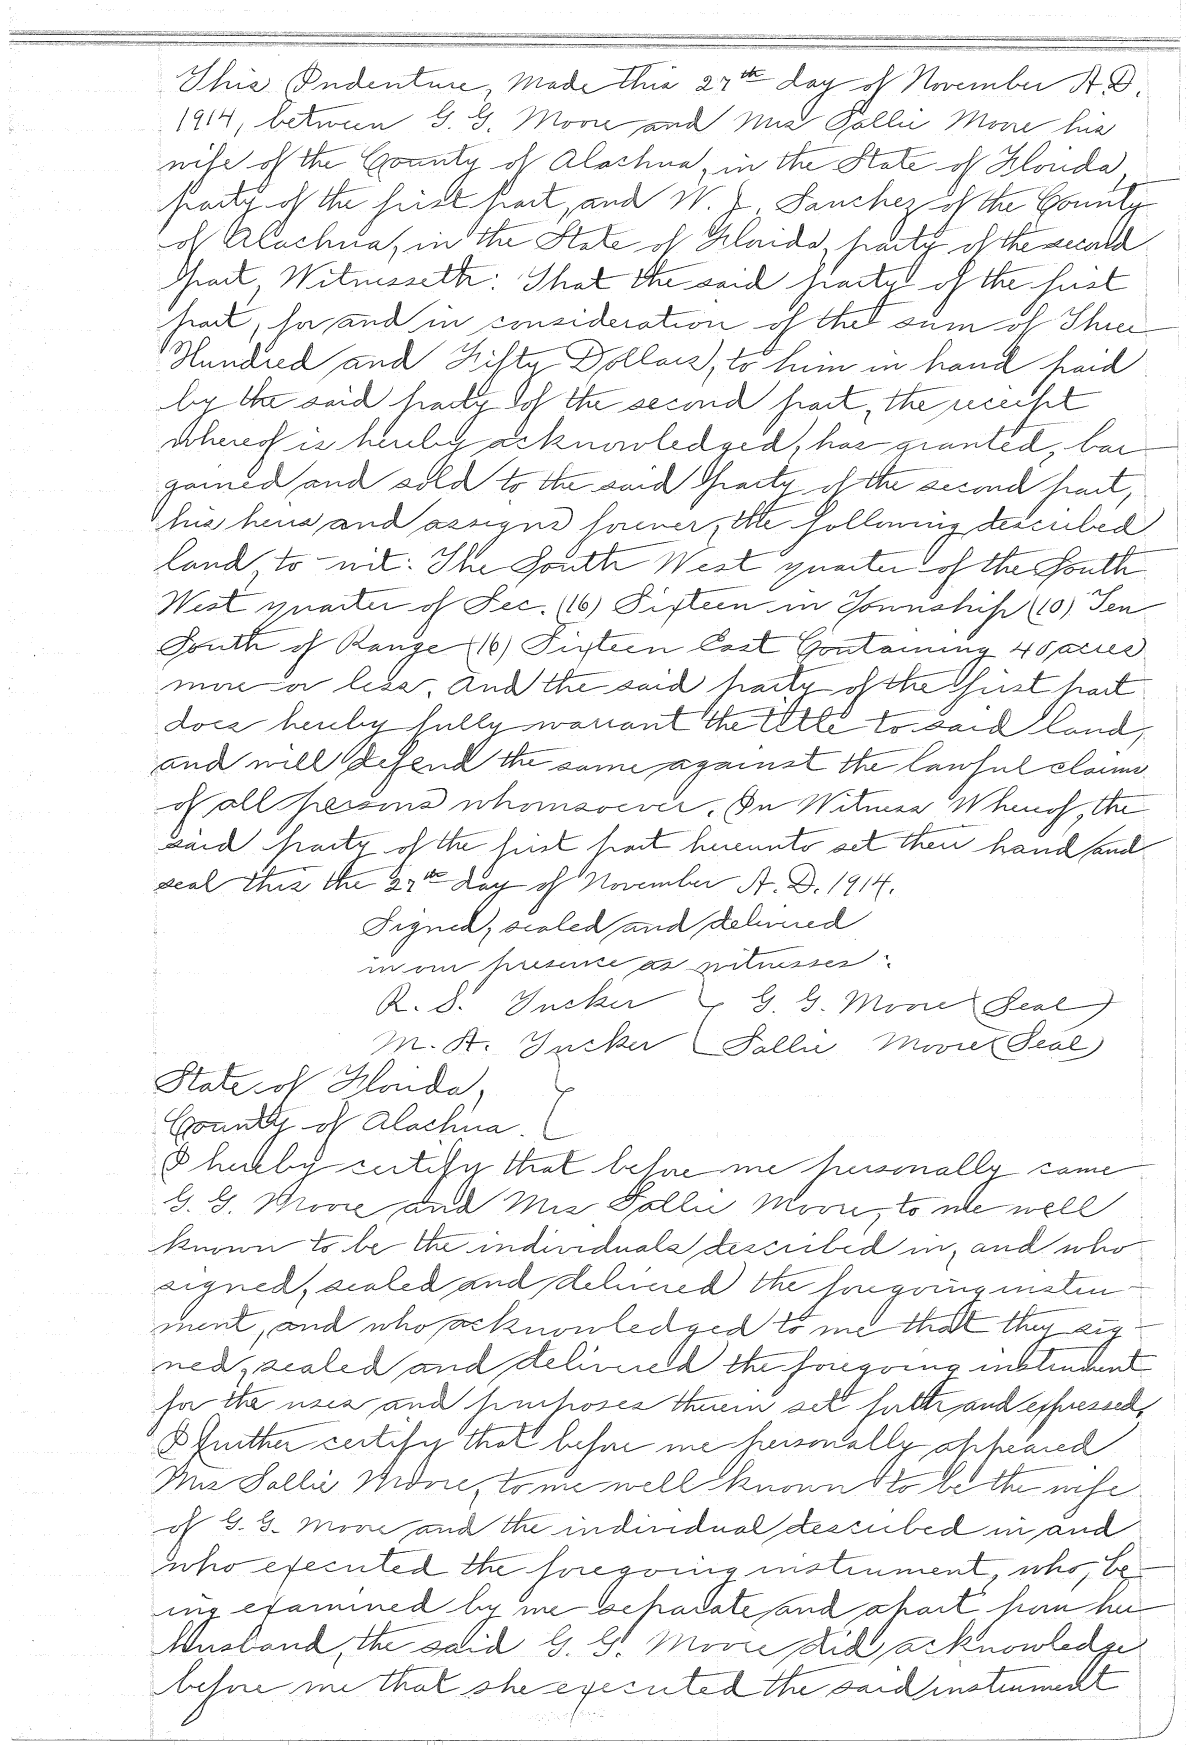 This Indenture, Made this 27th day of November A.D.
1914, between G. G. Moore and Mrs Sallie Moore his
wife of the County of Alachua, in the State of Florida,
party of the first part, and W. J. Sanchez of the County
of Alachua, in the State of Florida, party of the second
part, Witnesseth: That the said party of the first
part, for and in consideration of the sum of Three
Hundred and Fifty Dollars, to him in hand paid
by the said party of the second part, the receipt
whereof is hereby acknowledged, has granted, bar
gained and sold to the said party of the second part,
his heirs and assigns forever, the following described
land, to-wit: The South West quarter of the South
West quarter of Sec. (16) Sixteen in Township (10) Ten
South of Range (16) Sixteen East Containing 40 acres
more or less. And the said party of the first part
does hereby fully warrant the title to said land,
and will defend the same against the lawful claims
of all persons whomsoever. In Witness Whereof, the
said party of the first part hereunto set their hand and
seal this the 27th day of November A. D. 1914.
Signed, sealed and delivered
in our presence as witnesses:
R. S. Tucker } G. G. Moore (Seal)
M. A. Tucker { Sallie Moore (Seal)
State of Florida, }
County of Alachua. {
I hereby certify that before me personally came
G. G. Moore and Mrs Sallie Moore, to me well
known to be the individuals described in, and who
signed, sealed and delivered the foregoing instru-
ment, and who acknowledged to me that they sig-
ned, sealed and delivered the foregoing instrument
for the uses and purposes therein set forth and expressed,
I further certify that before me personally appeared
Mrs Sallie Moore, to me well known to be the wife
of G. G. Moore and the individual described in and
who executed the foregoing instrument, who, be-
ing examined by me separate and apart from her
husband, the said G. G. Moore did acknowledge
before me that she executed the said instrument